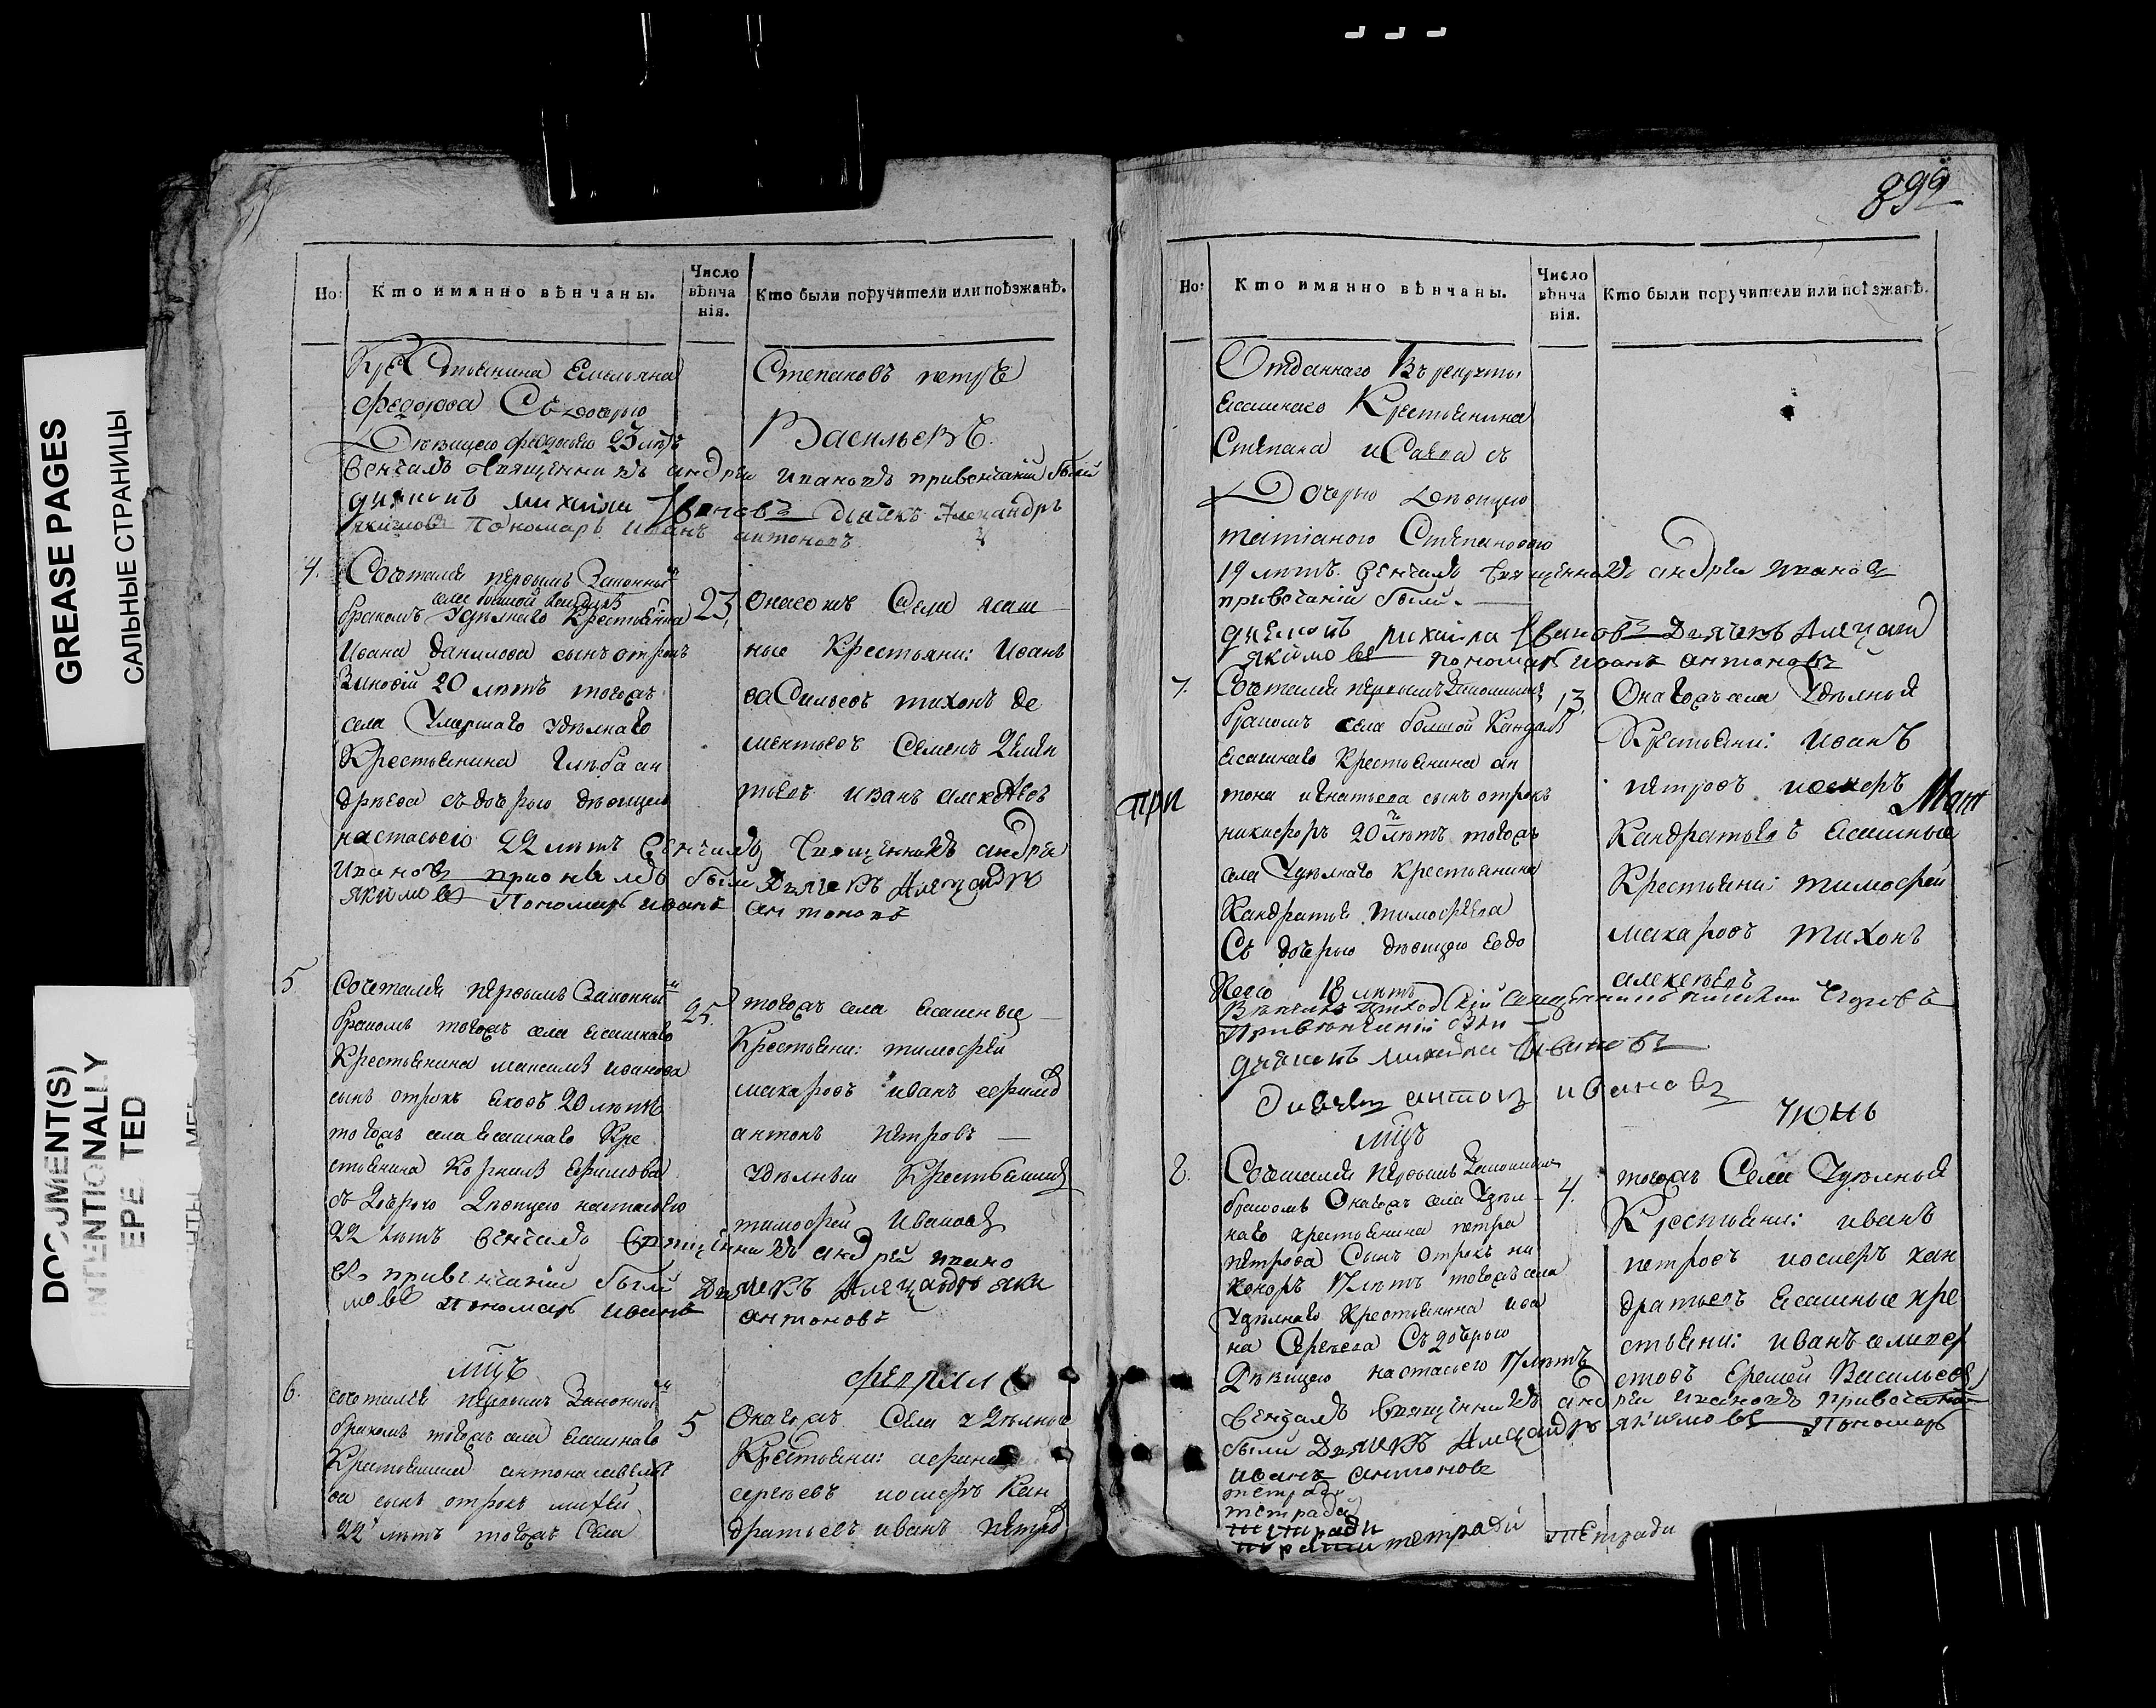 899
GREASE PAGES
САЛЬНЫЕ СТРАНИЦЫ
DOCUMENT(S)
INTENTIONALLY
Но:
Кто имянно вѣнчаны.
Число вѣнчанія.
Кто были поручители или поѣзжанѣ.
Крестьянина Емельяна
федорова Съ дочерью
Дѣвицею федосьею 23 лѣтъ
венчалъ священникъ андрей ивановъ привенчании были
диаконъ михаила Ивановъ Дьячекъ Александръ
якимовъ Пономарь иванъ антоновъ
Степановъ петръ
Васильевъ.
4.
Сочетался первымъ Законным
села болшой кандалѣ
бракомъ Удѣлнаго Крестьянина
Ивана данилова сынъ отрокъ
Зиновий 20 лѣтъ тогожъ
села Умершаго удѣлнаго
Крестьянина Глѣба ан
дрѣева съ дочерью дѣвицею
настасьею 22 лѣтъ венчалъ священникъ андрей
Ивановъ были Дьячекъ Александръ
якимовъ Пономарь иванъ антоновъ
23,
Онагожъ Села ясаш
ные Крестьяни: Иванъ
васильевъ тихонъ де
ментьевъ Семенъ демен
тьевъ иванъ алексѣевъ
5
Сочетался первымъ Законным
бракомъ тогожъ села ясашнаго
Крестьянина максима иванова
сынъ отрокъ яковъ 20 лѣтъ
тогожъ села ясашнаго Кре
стьянина Корнила Ефимова
съ дочерью дѣвицею настасьею
22 лѣтъ венчалъ священникъ андрей ивано
въ привенчании были Дьячекъ Александръ яки
мовъ пономарь иванъ антоновъ
25.
тогожъ села ясашные
Крестьяни: тимофей
макаровъ иванъ ефимов
антонъ петровъ
удѣлныи Крестьянинъ
тимофей Ивановъ
мцъ
февраля
6.
сочетался первымъ Законным
бракомъ тогожъ села ясашнаго
Крестьянина антона савелье
ва сынъ отрокъ
22 лѣтъ тогожъ Села
5
Онагожъ Села удѣлные
Крестьяни:
сергѣевъ иосифъ Кан
дратьевъ иванъ петров
Но:
Кто имянно вѣнчаны.
Число вѣнчанія.
Кто были поручители или поѣзжанѣ.
Отданнаго Въ рекруты
ясашнаго Крестьянина
Степана иСаева съ
Дочерью дѣвицею
татіаною Степановою
19 лѣтъ. венчалъ священникъ андрей иванов
привечании были.
диаконъ михаила Ивановъ Дьячекъ Александ
якимовъ пономарь иванъ антоновъ
при
7.
Сочетался первымъ Законным
бракомъ села болшой Кандалѣ
ясашнаго Крестьянина ан
тона игнатьева сынъ отрокъ
никифоръ 20 лѣтъ тогожъ
села Удѣлнаго Крестьянина
Кандратья тимофеева
Съ дочерью дѣвицею Евдо
Кеею 18 лѣтъ
Привенчании были
диаконъ михайла Ивановъ
Дьячекъ антонъ ивановъ
13,
Онагожъ села Удѣлныя
Крестьяни: иванъ
петровъ иосифъ
Кандратьевъ ясашные
Крестьяни: тимофей
макаровъ тихонъ
алексѣевъ
мцъ
Июнь
8.
Сочетался первымъ Законнымъ
бракомъ Онагожъ села Удѣл
наго крестьянина петра
петрова Сынъ отрокъ ни
коноръ 17 лѣтъ тогожъ села
Удѣлнаго Крестьянина ива
на Сергѣева Съ дочерью
Дѣвицею настасьею 17 лѣтъ
венчалъ священникъ андрей ивановъ
были Дьячекъ Александръ якимовъ Пономарь
иванъ антоновъ
4.
тогожъ Села Удѣлныя
Крестьяни: иванъ
петровъ иосифъ кан
дратьевъ ясашные кре
стьяни: иванъ селивер
стовъ Еремей Васильевъ
тетради
тетрадь
тетради тетради